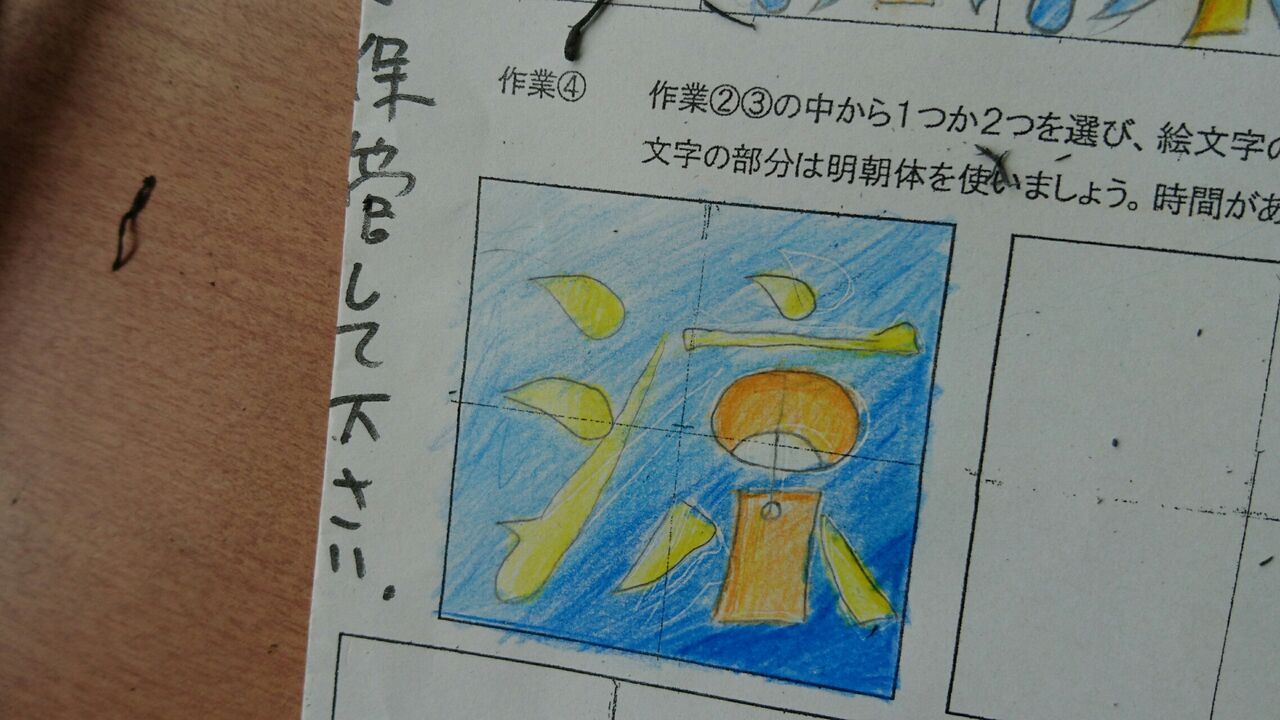 保管して下さい.
作業④
作業②③の中から1つか2つを選び、絵文字の
文字の部分は明朝体を使いましょう。時間があ
涼